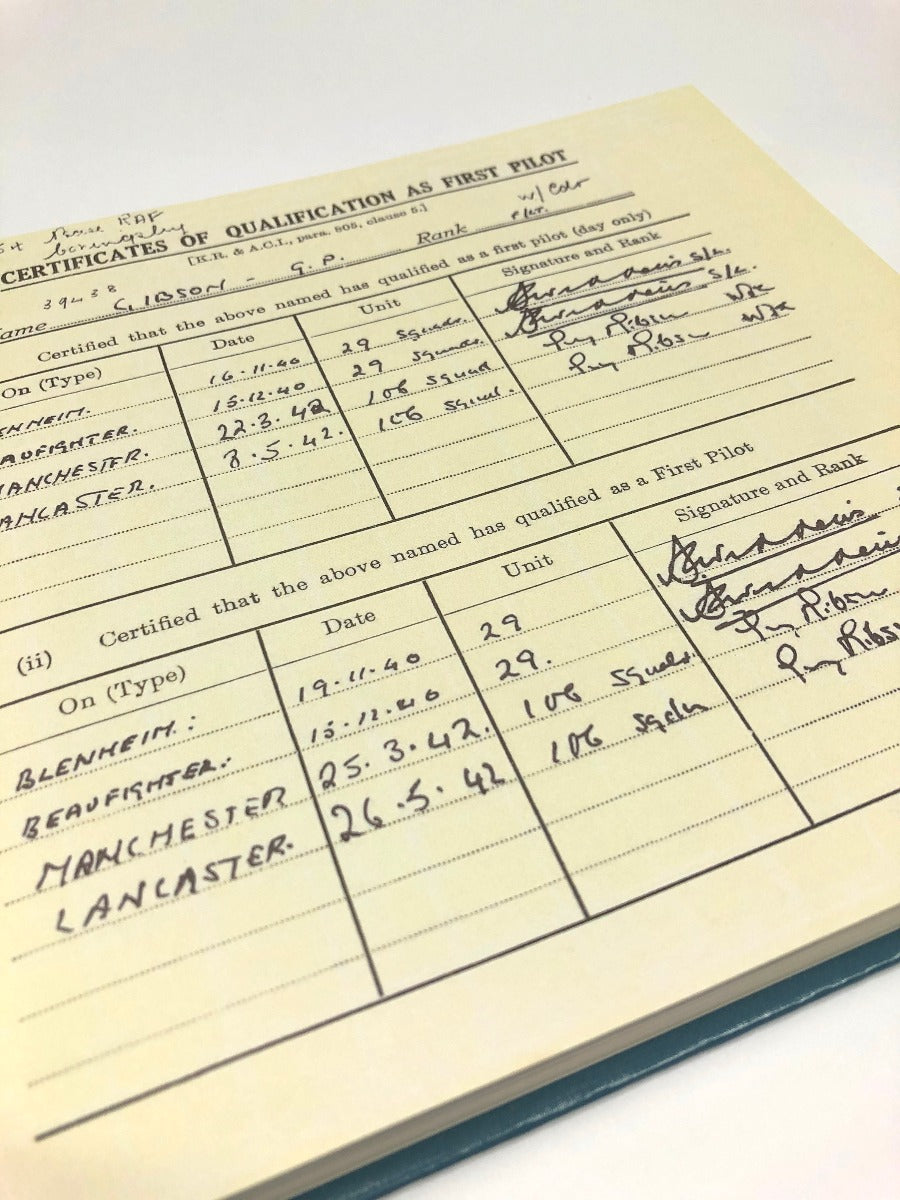 RAF
CERTIFICATES OF QUALIFICATION AS FIRST PILOT
[K.R. & A.C.I., para. 805, clause 5.]
39438
ame GIBSON - G.P. Rank W/Cdr
Certified that the above named has qualified as a first pilot (day only)
On (Type) Date Unit Signature and Rank
ENHEIM. 16.11.40 29 Squadn. S/L.
AUFIGHTER. 15.12.40 29 Squadn. S/L.
MANCHESTER. 22.3.42 106 Squad
ANCASTER. 8.5.42. 106 Squad.
(ii) Certified that the above named has qualified as a First Pilot
On (Type) Date Unit Signature and Rank
BLENHEIM: 19.11.40 29
BEAUFIGHTER. 15.12.40 29.
MANCHESTER 25.3.42. 106 Squadn.
LANCASTER. 26.5.42 106 Sqdn